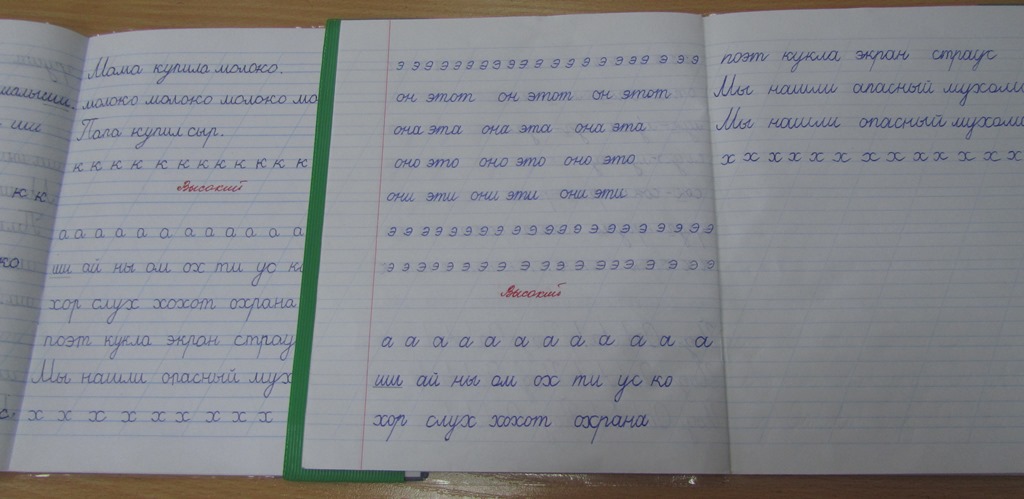 Мама купила молоко.
молоко молоко молоко мо
Папа купил сыр.
к к к к к к к к к к к к
Высокий
а а а а а а а а а а а а
ши ай ны ом ох ти ус ко
хор слух хохот охрана
поэт кукла экран страу
Мы нашли опасный мух
х х х х х х х х х
э э э э э э э э э э э э э э э э э э э э э э э
он этот он этот он этот
она эта она эта она эта
оно это оно это оно это
они эти они эти они эти
э э э э э э э э э э э э э э э э э э э э э э
э э э э э э э э э э э э э э э э э э э э э
Высокий
а а а а а а а а а а а а
ши ай ны ом ох ти ус ко
хор слух хохот охрана
поэт кукла экран страус
Мы нашли апасный мухомо
Мы нашли опасный мухомо
х х х х х х х х х х х х х